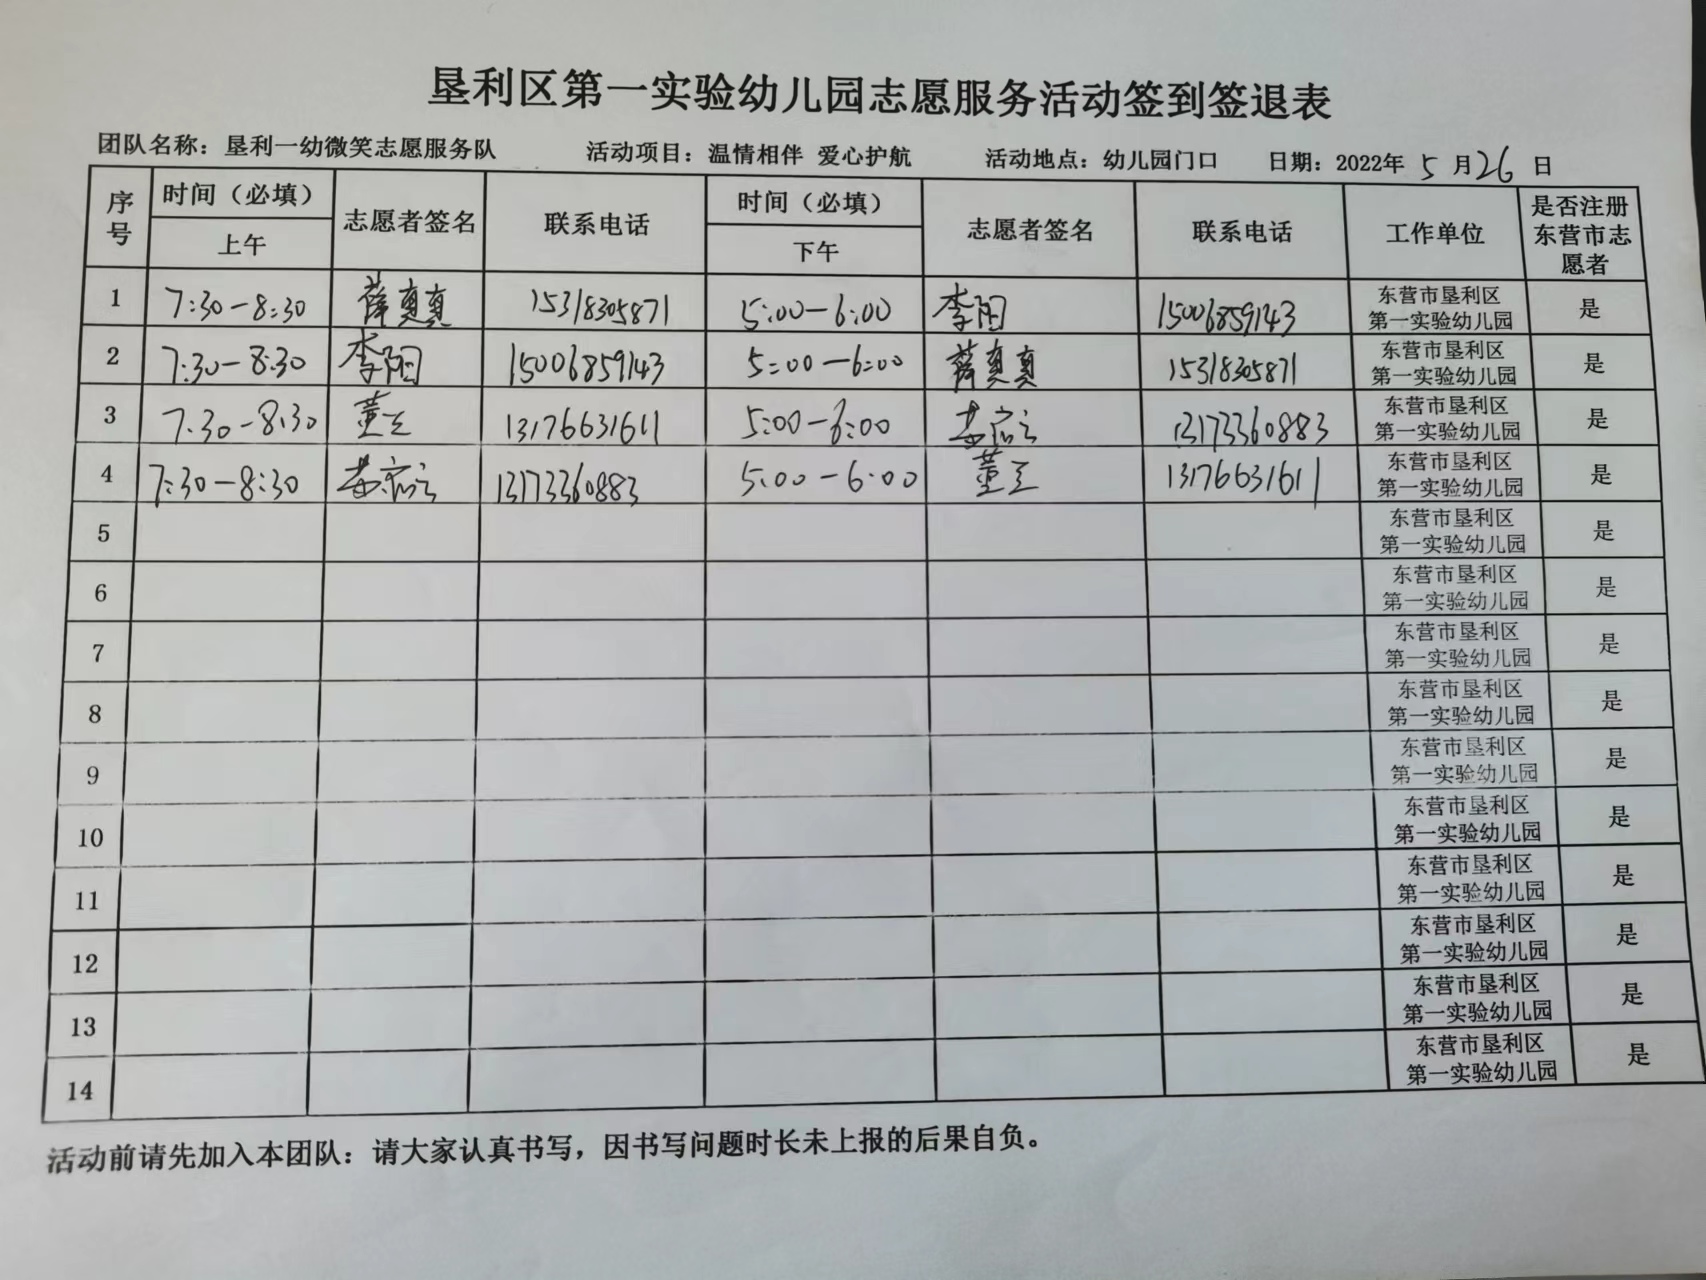 垦利区第一实验幼儿园志愿服务活动签到签退表
团队名称：垦利一幼微笑志愿服务队 活动项目：温情相伴 爱心护航 活动地点：幼儿园门口 日期：2022年 5 月 26 日
序号 时间（必填） 志愿者签名 联系电话 时间（必填） 志愿者签名 联系电话 工作单位 是否注册东营市志愿者
上午 下午
1 7:30-8:30 薛真真 15318305871 5:00-6:00 李阳 15006859143 东营市垦利区第一实验幼儿园 是
2 7:30-8:30 李阳 15006859143 5:00-6:00 薛真真 15318305871 东营市垦利区第一实验幼儿园 是
3 7:30-8:30 董 13176631611 5:00-6:00 13173360883 东营市垦利区第一实验幼儿园 是
4 7:30-8:30 13173360883 5:00-6:00 董 13176631611 东营市垦利区第一实验幼儿园 是
5 东营市垦利区第一实验幼儿园 是
6 东营市垦利区第一实验幼儿园 是
7 东营市垦利区第一实验幼儿园 是
8 东营市垦利区第一实验幼儿园 是
9 东营市垦利区第一实验幼儿园 是
10 东营市垦利区第一实验幼儿园 是
11 东营市垦利区第一实验幼儿园 是
12 东营市垦利区第一实验幼儿园 是
13 东营市垦利区第一实验幼儿园 是
14 东营市垦利区第一实验幼儿园 是
活动前请先加入本团队：请大家认真书写，因书写问题时长未上报的后果自负。